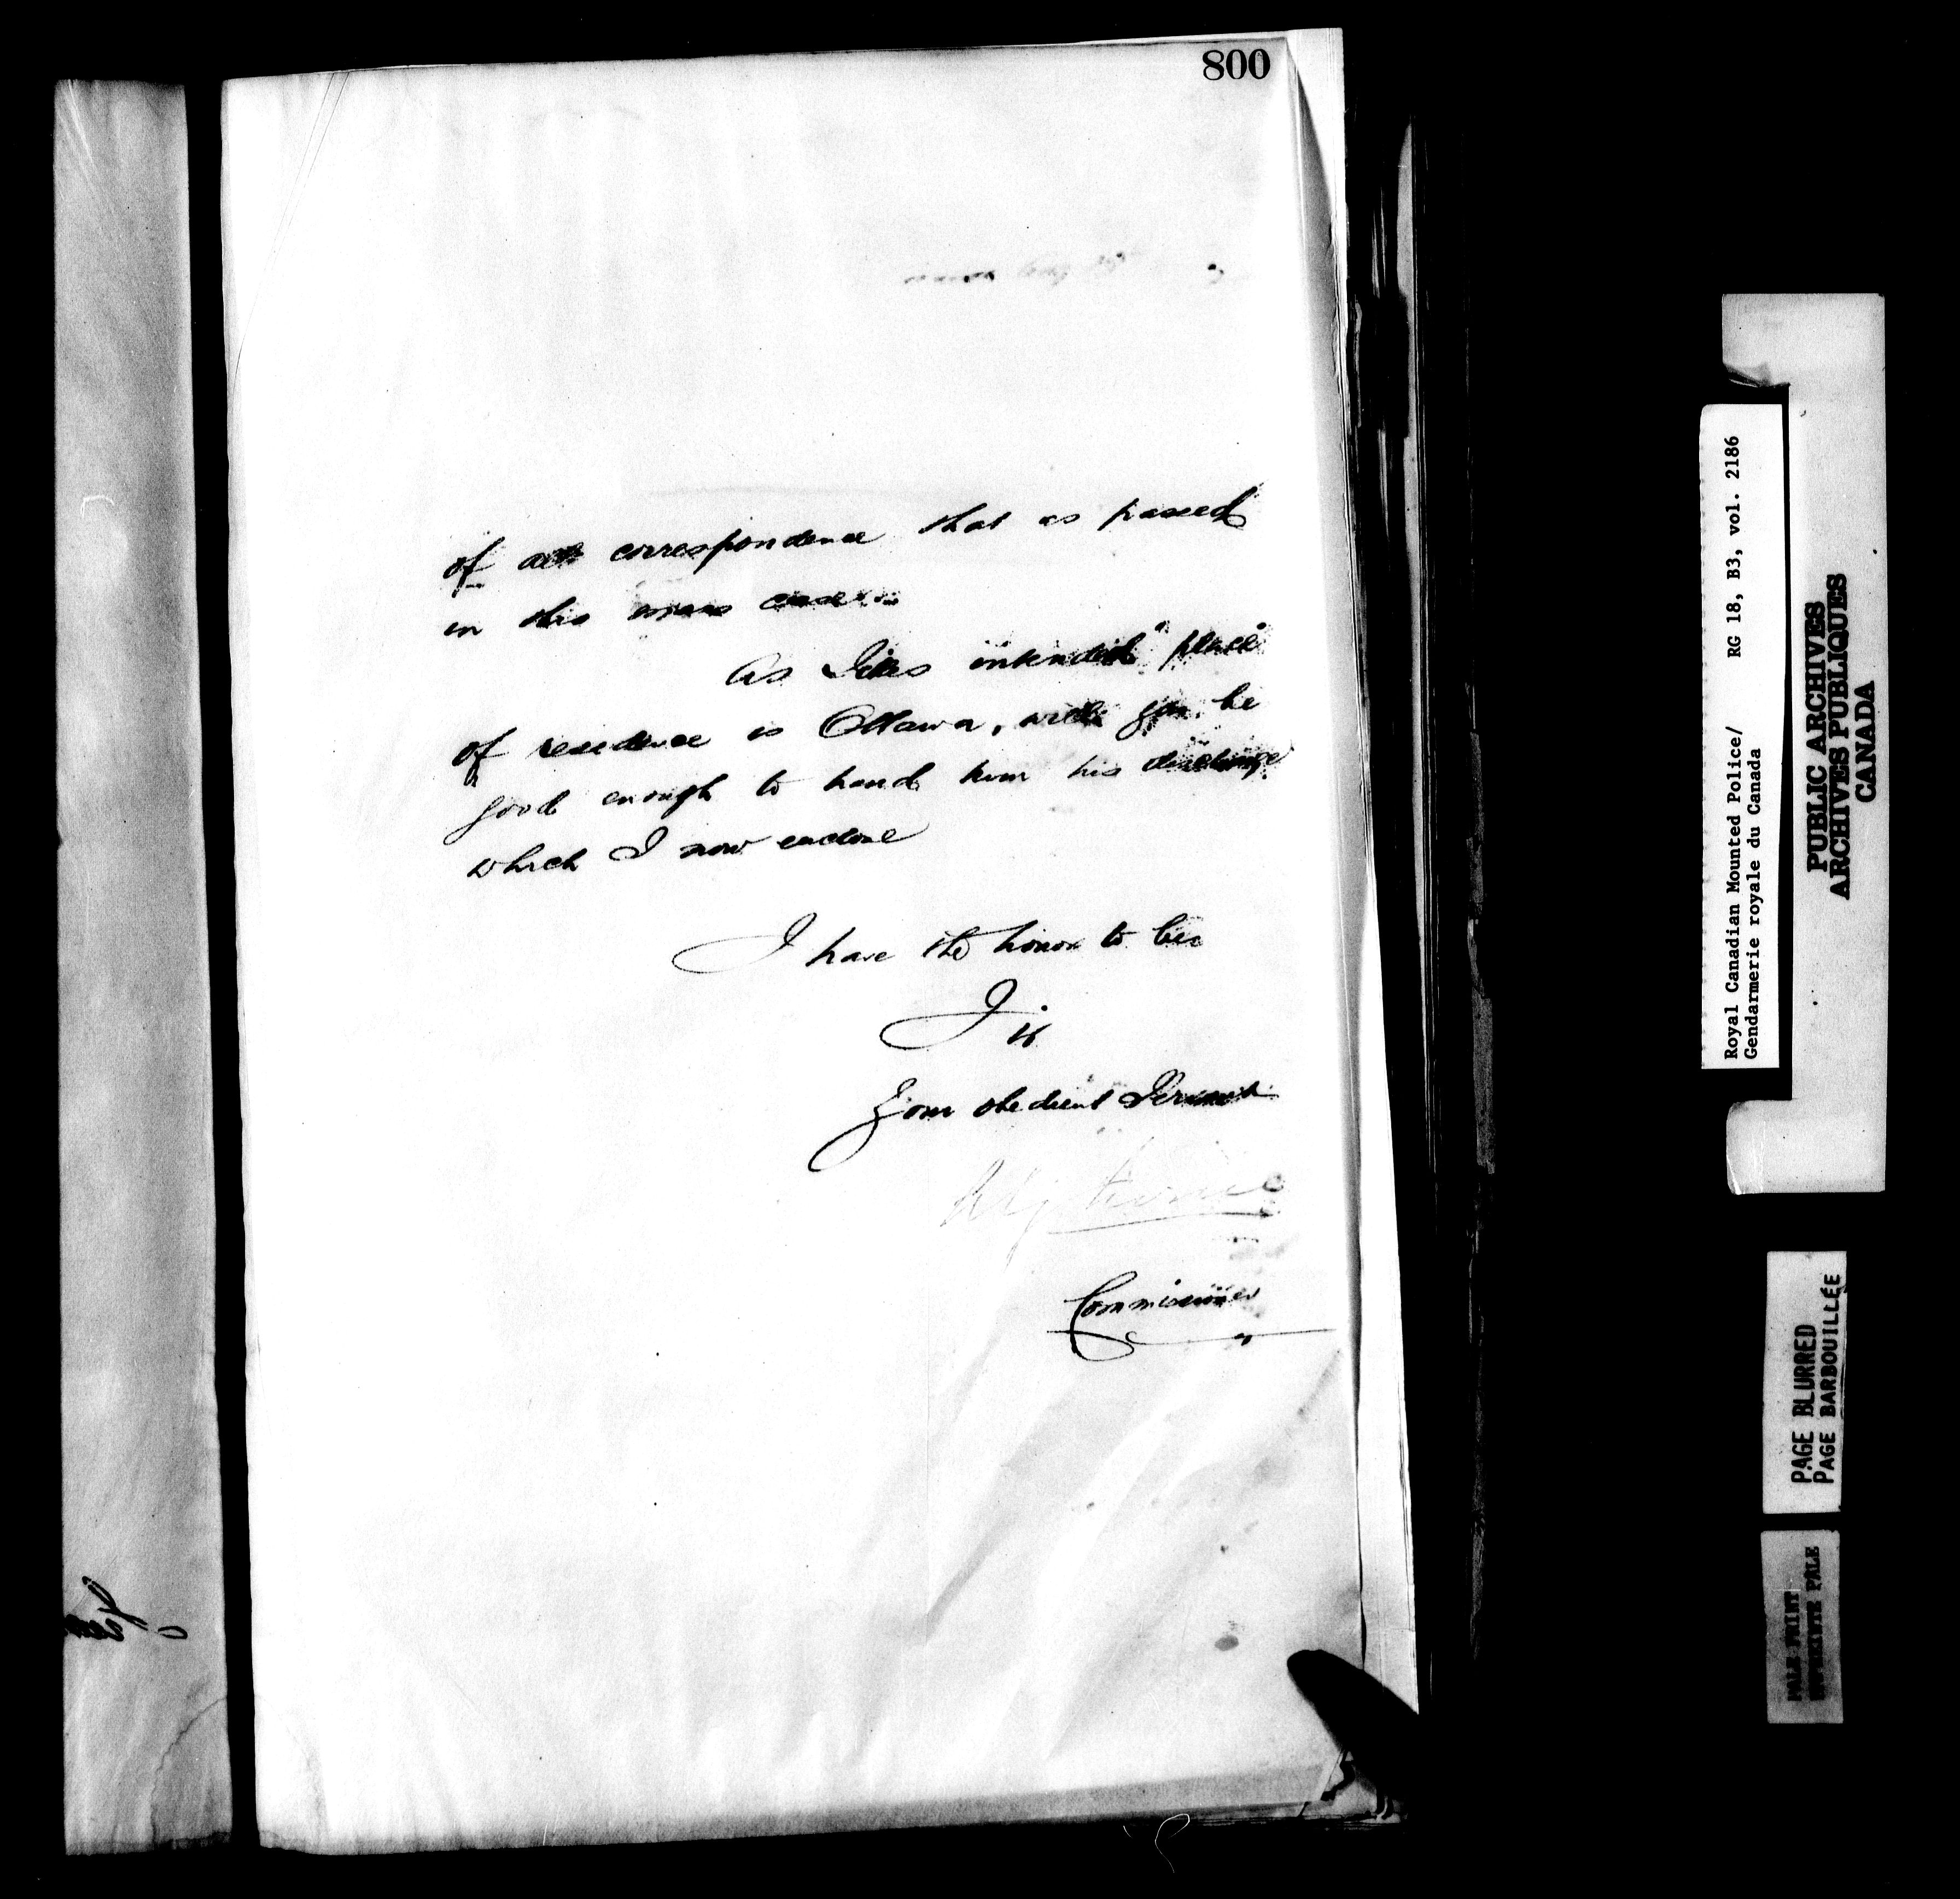 800
of all correspondence that as passed
in this mans case.
As intended "place"
of residence is Ottawa, will you be
good enough to hand him his discharge
which I now enclose
I have the honor to be
Sir
Your obedient Servant
Commissioner
Royal Canadian Mounted Police/ RG 18, B3, vol. 2186
Gendarmerie royale du Canada
PUBLIC ARCHIVES
ARCHIVES PUBLIQUES
CANADA
PAGE BLURRED
PAGE BARBOUILLÉE
PALE PRINT
EPREINTE PALE